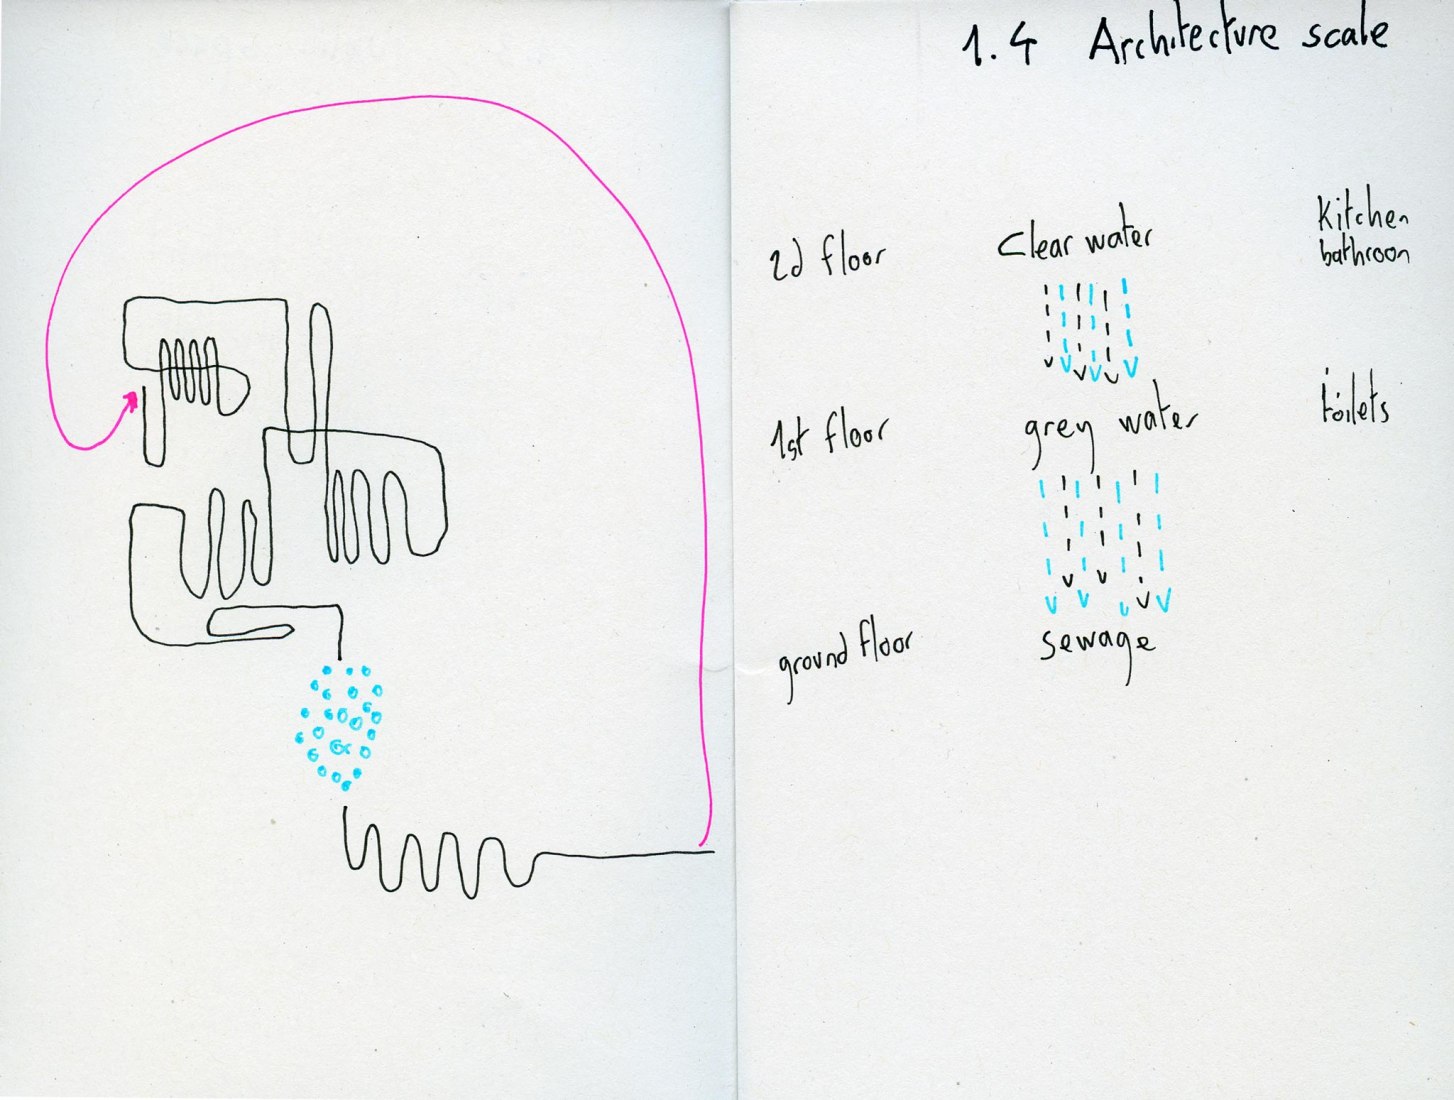 1.4 Architecture scale
2d floor
Clear water
Kitchen
bathroon
1st floor
grey water
toilets
ground floor
sewage